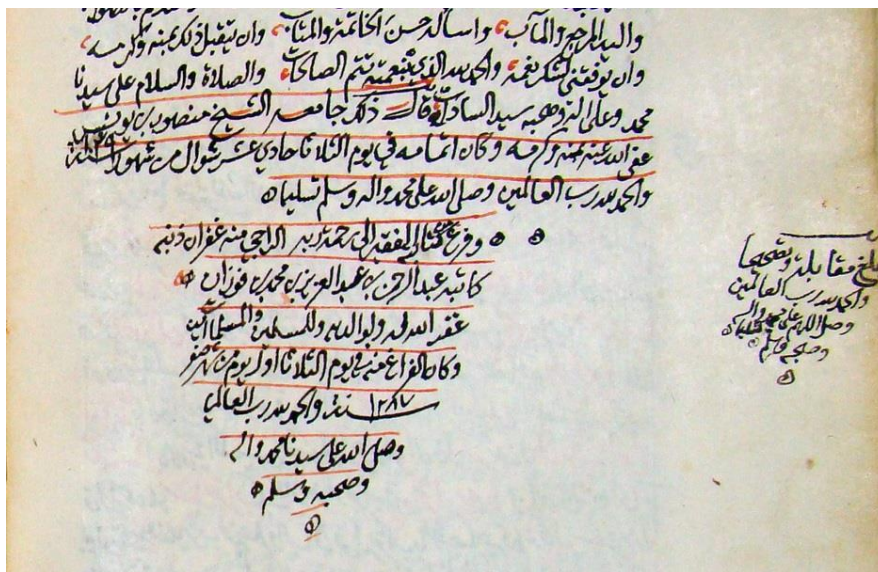 واليه المرجع والمآب واسأله حسن الخاتمة والمتاب وان يتقبل ذلك بمنه وكرمه
وان يوفقني لشكر نعمه والحمد لله الذي بنعمته تتم الصالحات والصلاة والسلام على سيدنا
محمد وعلى اله وصحبه سيد السادات قال ذلك جامعه الشيخ منصور بن يونس
عفى الله عنه بمنه وكرمه وكان اتمامه في يوم الثلاثا حادي عشر شوال من شهور
والحمد لله رب العالمين وصلى الله على محمد واله وسلم تسليما
وفرغ من الفقير الى رحمة ربه الراجي منه غفران ذنبه
كاتبه عبد الرحمن بن عبد العزيز بن محمد بن فوزان
غفر الله له ولوالديه وللمسلمين والمسلمات آمين
وكان الفراغ منه في يوم الثلاثا اول يوم من شهر صفر
سنة ١٢٨٧ والحمد لله رب العالمين
وصلى الله على سيدنا محمد واله
وصحبه وسلم
بلغ مقابلة وتصحيحا
والحمد لله رب العالمين
وصلى الله على محمد واله
وصحبه وسلم